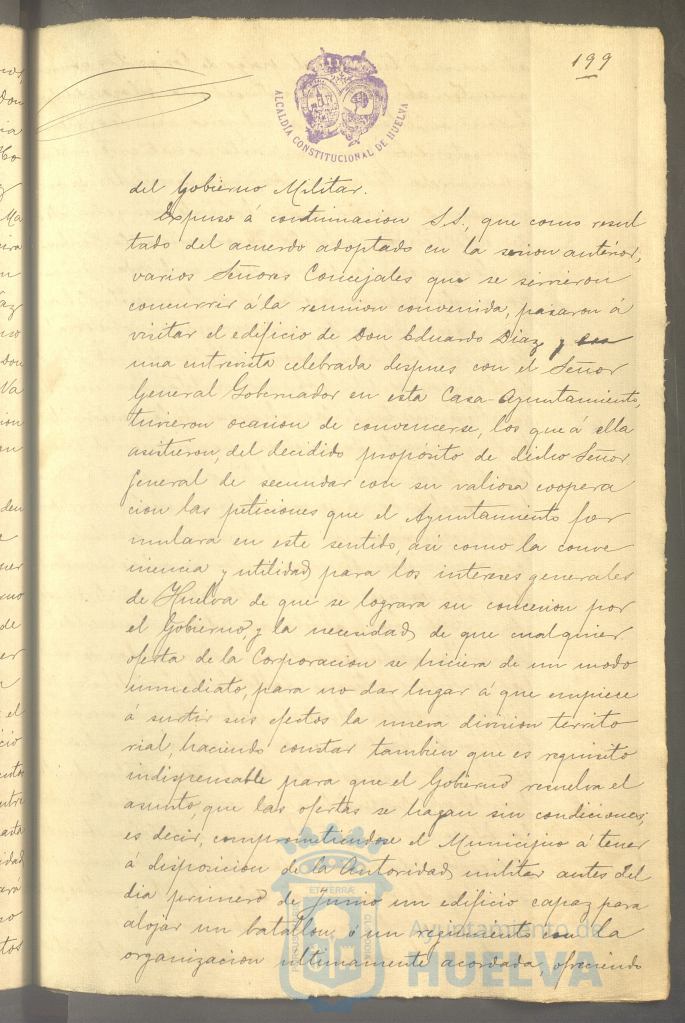 199
ALCALDÍA CONSTITUCIONAL DE HUELVA
del Gobierno Militar.
Expuso á continuacion S.S., que como resul
tado del acuerdo adoptado en la sesion anterior,
varios Señores Concejales que se sirvieron
concurrir á la reunion convenida, pasaron á
visitar el edificio de Don Eduardo Diaz y
una entrevista celebrada despues con el Señor
General Gobernador en esta Casa-Ayuntamiento,
tuvieron ocasion de convencerse, los que á ella
asistieron, del decidido propósito de dicho Señor
General de secundar con su valiosa coopera
cion las peticiones que el Ayuntamiento for
mulara en este sentido, asi como la conve
niencia y utilidad para los intereses generales
de Huelva de que se lograra su concesion por
el Gobierno, y la necesidad de que cualquier
oferta de la Corporacion se hiciera de un modo
inmediato, para no dar lugar á que empiece
á surtir sus efectos la nueva division territo
rial, haciendo constar tambien que es requisito
indispensable para que el Gobierno resuelva el
asunto, que las ofertas se hagan sin condiciones,
es decir, comprometiendose el Municipio á tener
á disposicion de la Autoridad militar antes del
dia primero de Junio un edificio capaz para
alojar un batallon, ó un regimiento con la
organizacion ultimamente acordada, ofreciendo
Ayuntamiento de
HUELVA